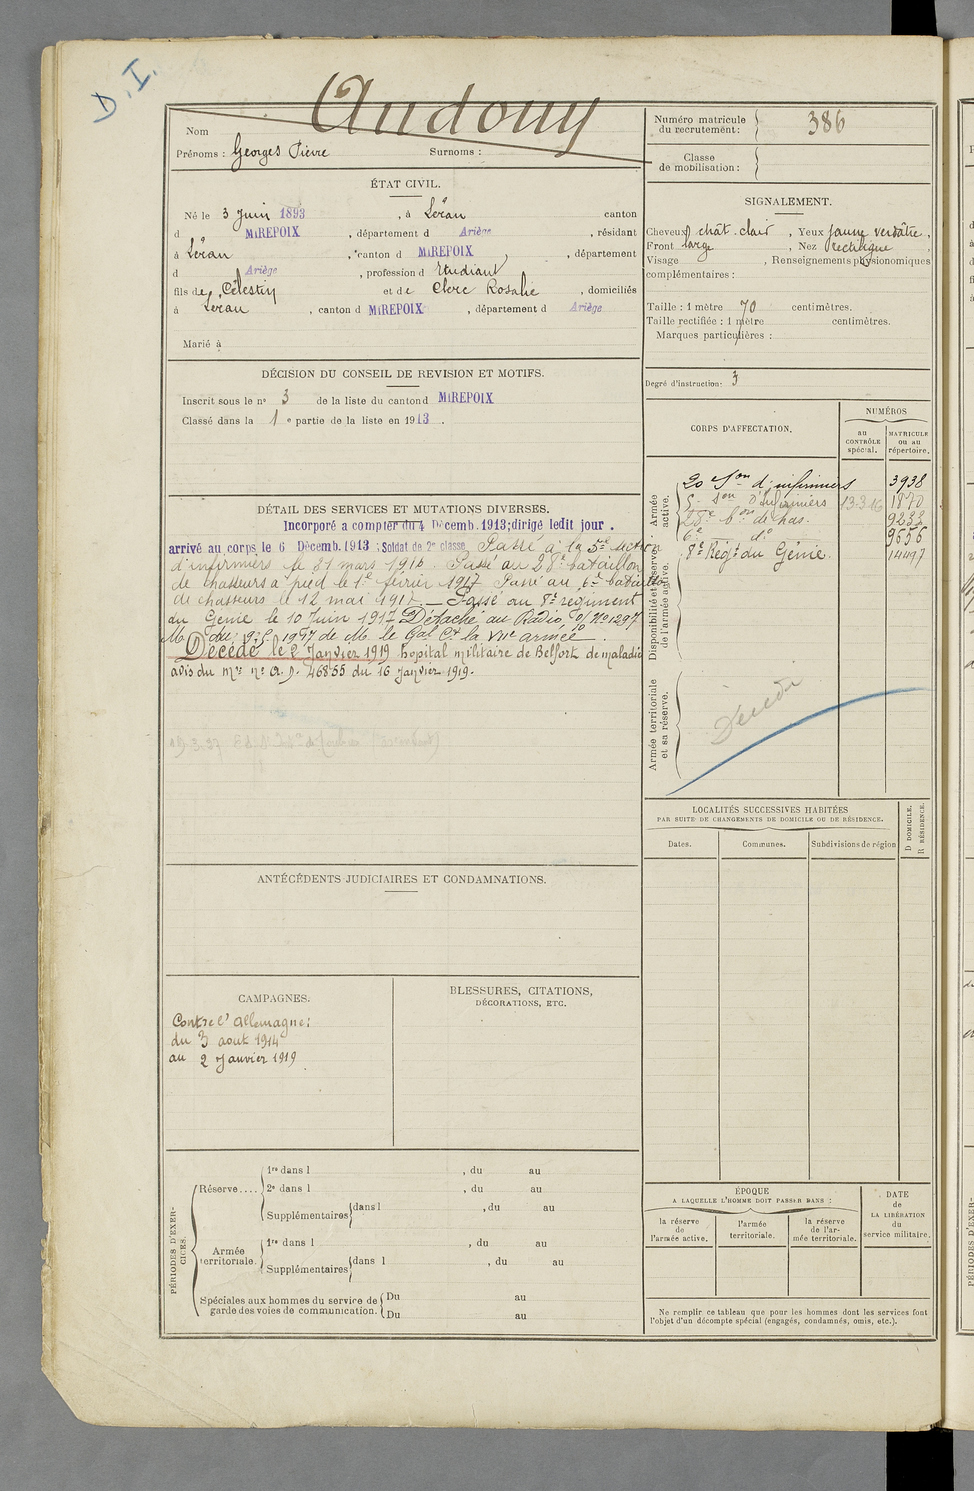 D.I.
Nom Audouy
Prénoms : Georges Pierre Surnoms :
Numéro matricule
du recrutement : 386
Classe
de mobilisation :
ÉTAT CIVIL.
Né le 3 Juin 1893 , à Léran canton
d MIREPOIX , département d Ariège , résidant
à Léran , canton d MIREPOIX , département
d Ariège , profession d Etudiant
fils de Célestin et de Clerc Rosalie , domiciliés
à Léran , canton d MIREPOIX , département d Ariège
Marié à
SIGNALEMENT.
Cheveux chât. clair , Yeux jaune verdâtre ,
Front large , Nez rectiligne
Visage , Renseignements physionomiques
complémentaires :
Taille : 1 mètre 70 centimètres.
Taille rectifiée : 1 mètre centimètres.
Marques particulières :
Degré d'instruction : 3
DÉCISION DU CONSEIL DE REVISION ET MOTIFS.
Inscrit sous le nº 3 de la liste du canton d MIREPOIX
Classé dans la 1 e partie de la liste en 1913 .
DÉTAIL DES SERVICES ET MUTATIONS DIVERSES.
Incorporé a compter du 4 Décemb. 1913; dirigé ledit jour .
arrivé au corps le 6 Décemb. 1913 : Soldat de 2e classe Passé à la 5e Section
d'infirmiers le 31 mars 1916. Passé au 28e bataillon
de chasseurs à pied le 1e février 1917 Passé au 6e bataillon
de chasseurs le 12 mai 1917 _ Passé au 8e régiment
du Génie le 10 Juin 1917 Détaché au Radio Nº 1297
M du 9.5 1917 de M. le Gal Ct la VIIe armée.
Décédé le 2 Janvier 1919 hopital militaire de Belfort de maladie
avis du mre nº 46855 du 16 Janvier 1919.
CORPS D'AFFECTATION.
NUMÉROS
au
CONTRÔLE
spécial.
MATRICULE
ou au
répertoire.
Armée
active.
20 Son d'infirmiers 3938
5e Son d'Infirmiers 13-3-16 1870
28e bon de chas. 9233
6e do 9656
8e Régt du Génie. 14197
Disponibilité et réserve
de l'armée active.
Armée territoriale
et sa réserve.
Décédé
LOCALITÉS SUCCESSIVES HABITÉES
PAR SUITE DE CHANGEMENTS DE DOMICILE OU DE RÉSIDENCE.
Dates. Communes. Subdivisions de région
D DOMICILE.
R RÉSIDENCE.
ANTÉCÉDENTS JUDICIAIRES ET CONDAMNATIONS.
CAMPAGNES.
Contre l'Allemagne:
du 3 aout 1914
au 2 Janvier 1919
BLESSURES, CITATIONS,
DÉCORATIONS, ETC.
PÉRIODES D'EXER-
CICES.
Réserve....
1re dans l , du au
2e dans l , du au
Supplémentaires dans l , du au
Armée
territoriale.
1re dans l , du au
Supplémentaires dans l , du au
Spéciales aux hommes du service de
garde des voies de communication.
Du au
Du au
ÉPOQUE
A LAQUELLE L'HOMME DOIT PASSER DANS :
la réserve
de
l'armée active.
l'armée
territoriale.
la réserve
de l'ar-
mée territoriale.
DATE
de
LA LIBÉRATION
du
service militaire.
Ne remplir ce tableau que pour les hommes dont les services font
l'objet d'un décompte spécial (engagés, condamnés, omis, etc.).